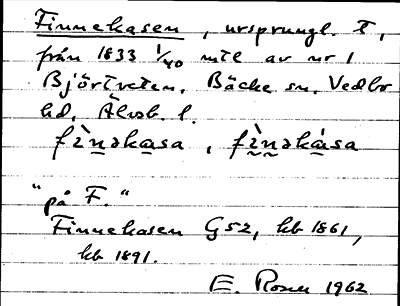 Finnekasen, ursprungl. t,
från 1833 1/40 mtl av nr 1
Björtveten. Bäcke sn, Vedbo
hd, Älvsb. l.
fìnəkasa, fìnəkása
"på F."
Finnekasen G52, kb 1861,
kb 1891.
E. Rosell 1962